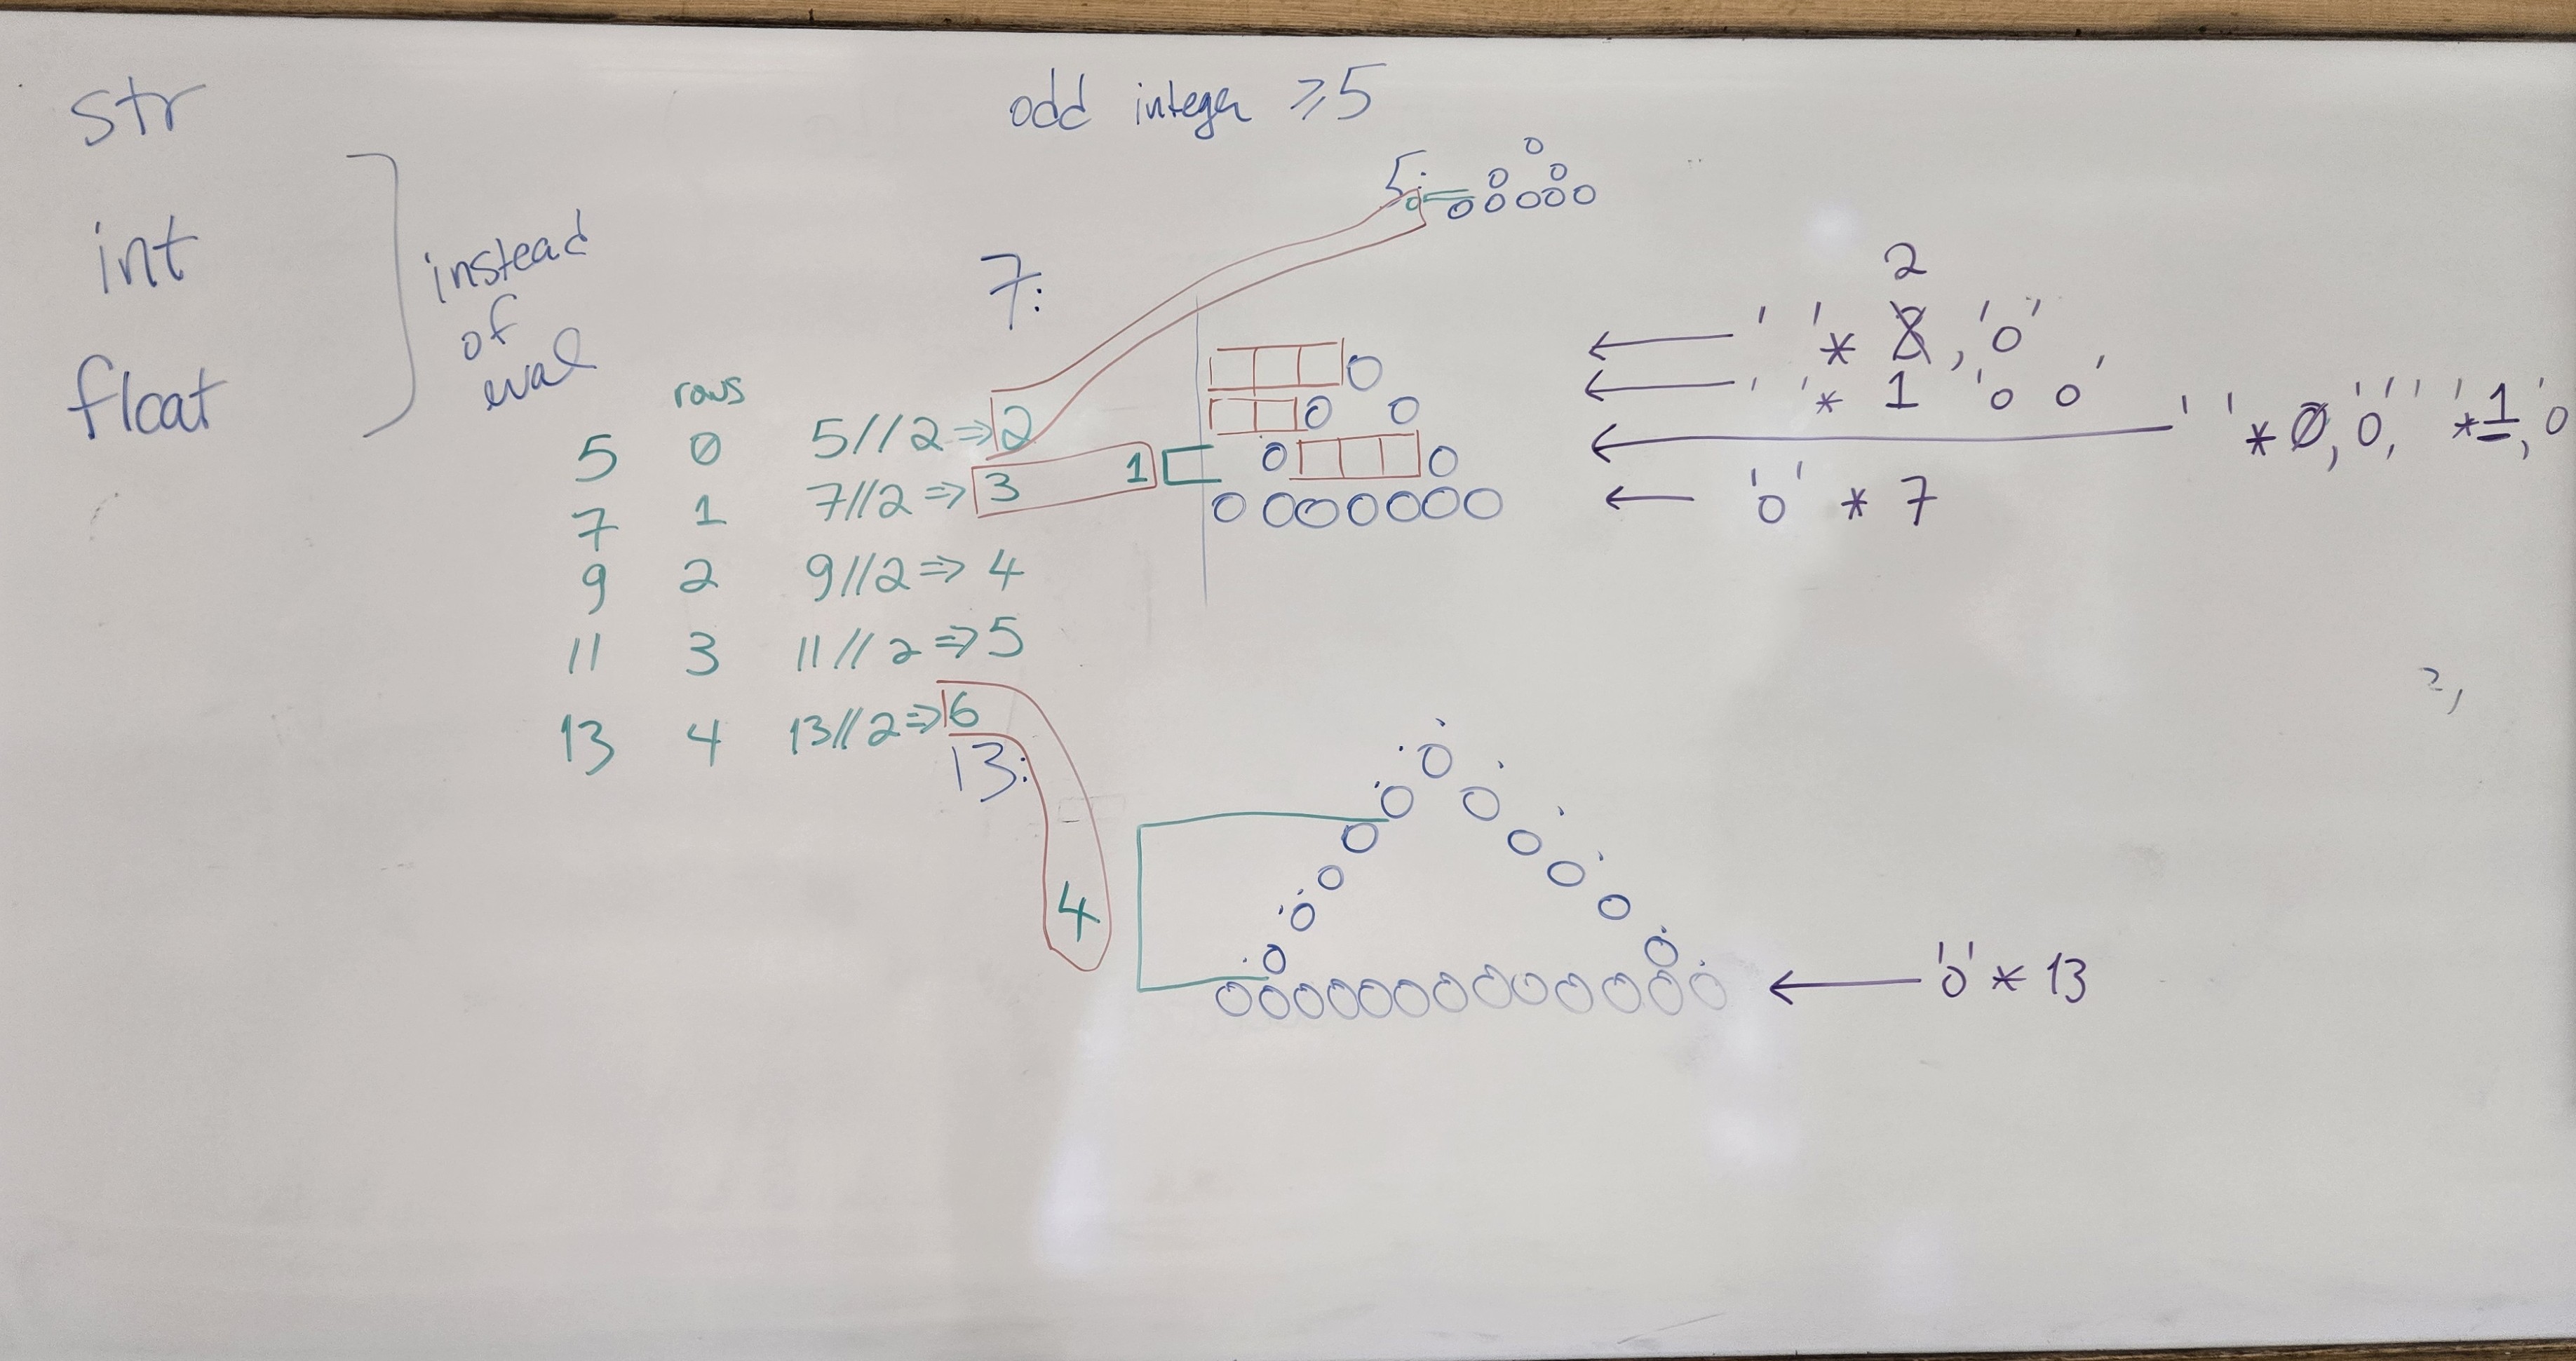 str
int
float
instead
of
eval
odd integer ≥5
5:
0
o
o o
o o o o o
7:
rows
5 0 5//2 => 2
7 1 7//2 => 3 1
9 2 9//2 => 4
11 3 11//2 => 5
13 4 13//2 => 6
o
o o
o o
o o o o o o o
2
← ' ' * , 'o'
← ' ' * 1 'o o'
← ' ' * 0, 'o', ' ' * 1, 'o
← 'o' * 7
13:
4
o
o o
o o
o o
o o
o o
o o o o o o o o o o o o o
← 'o' * 13
2,